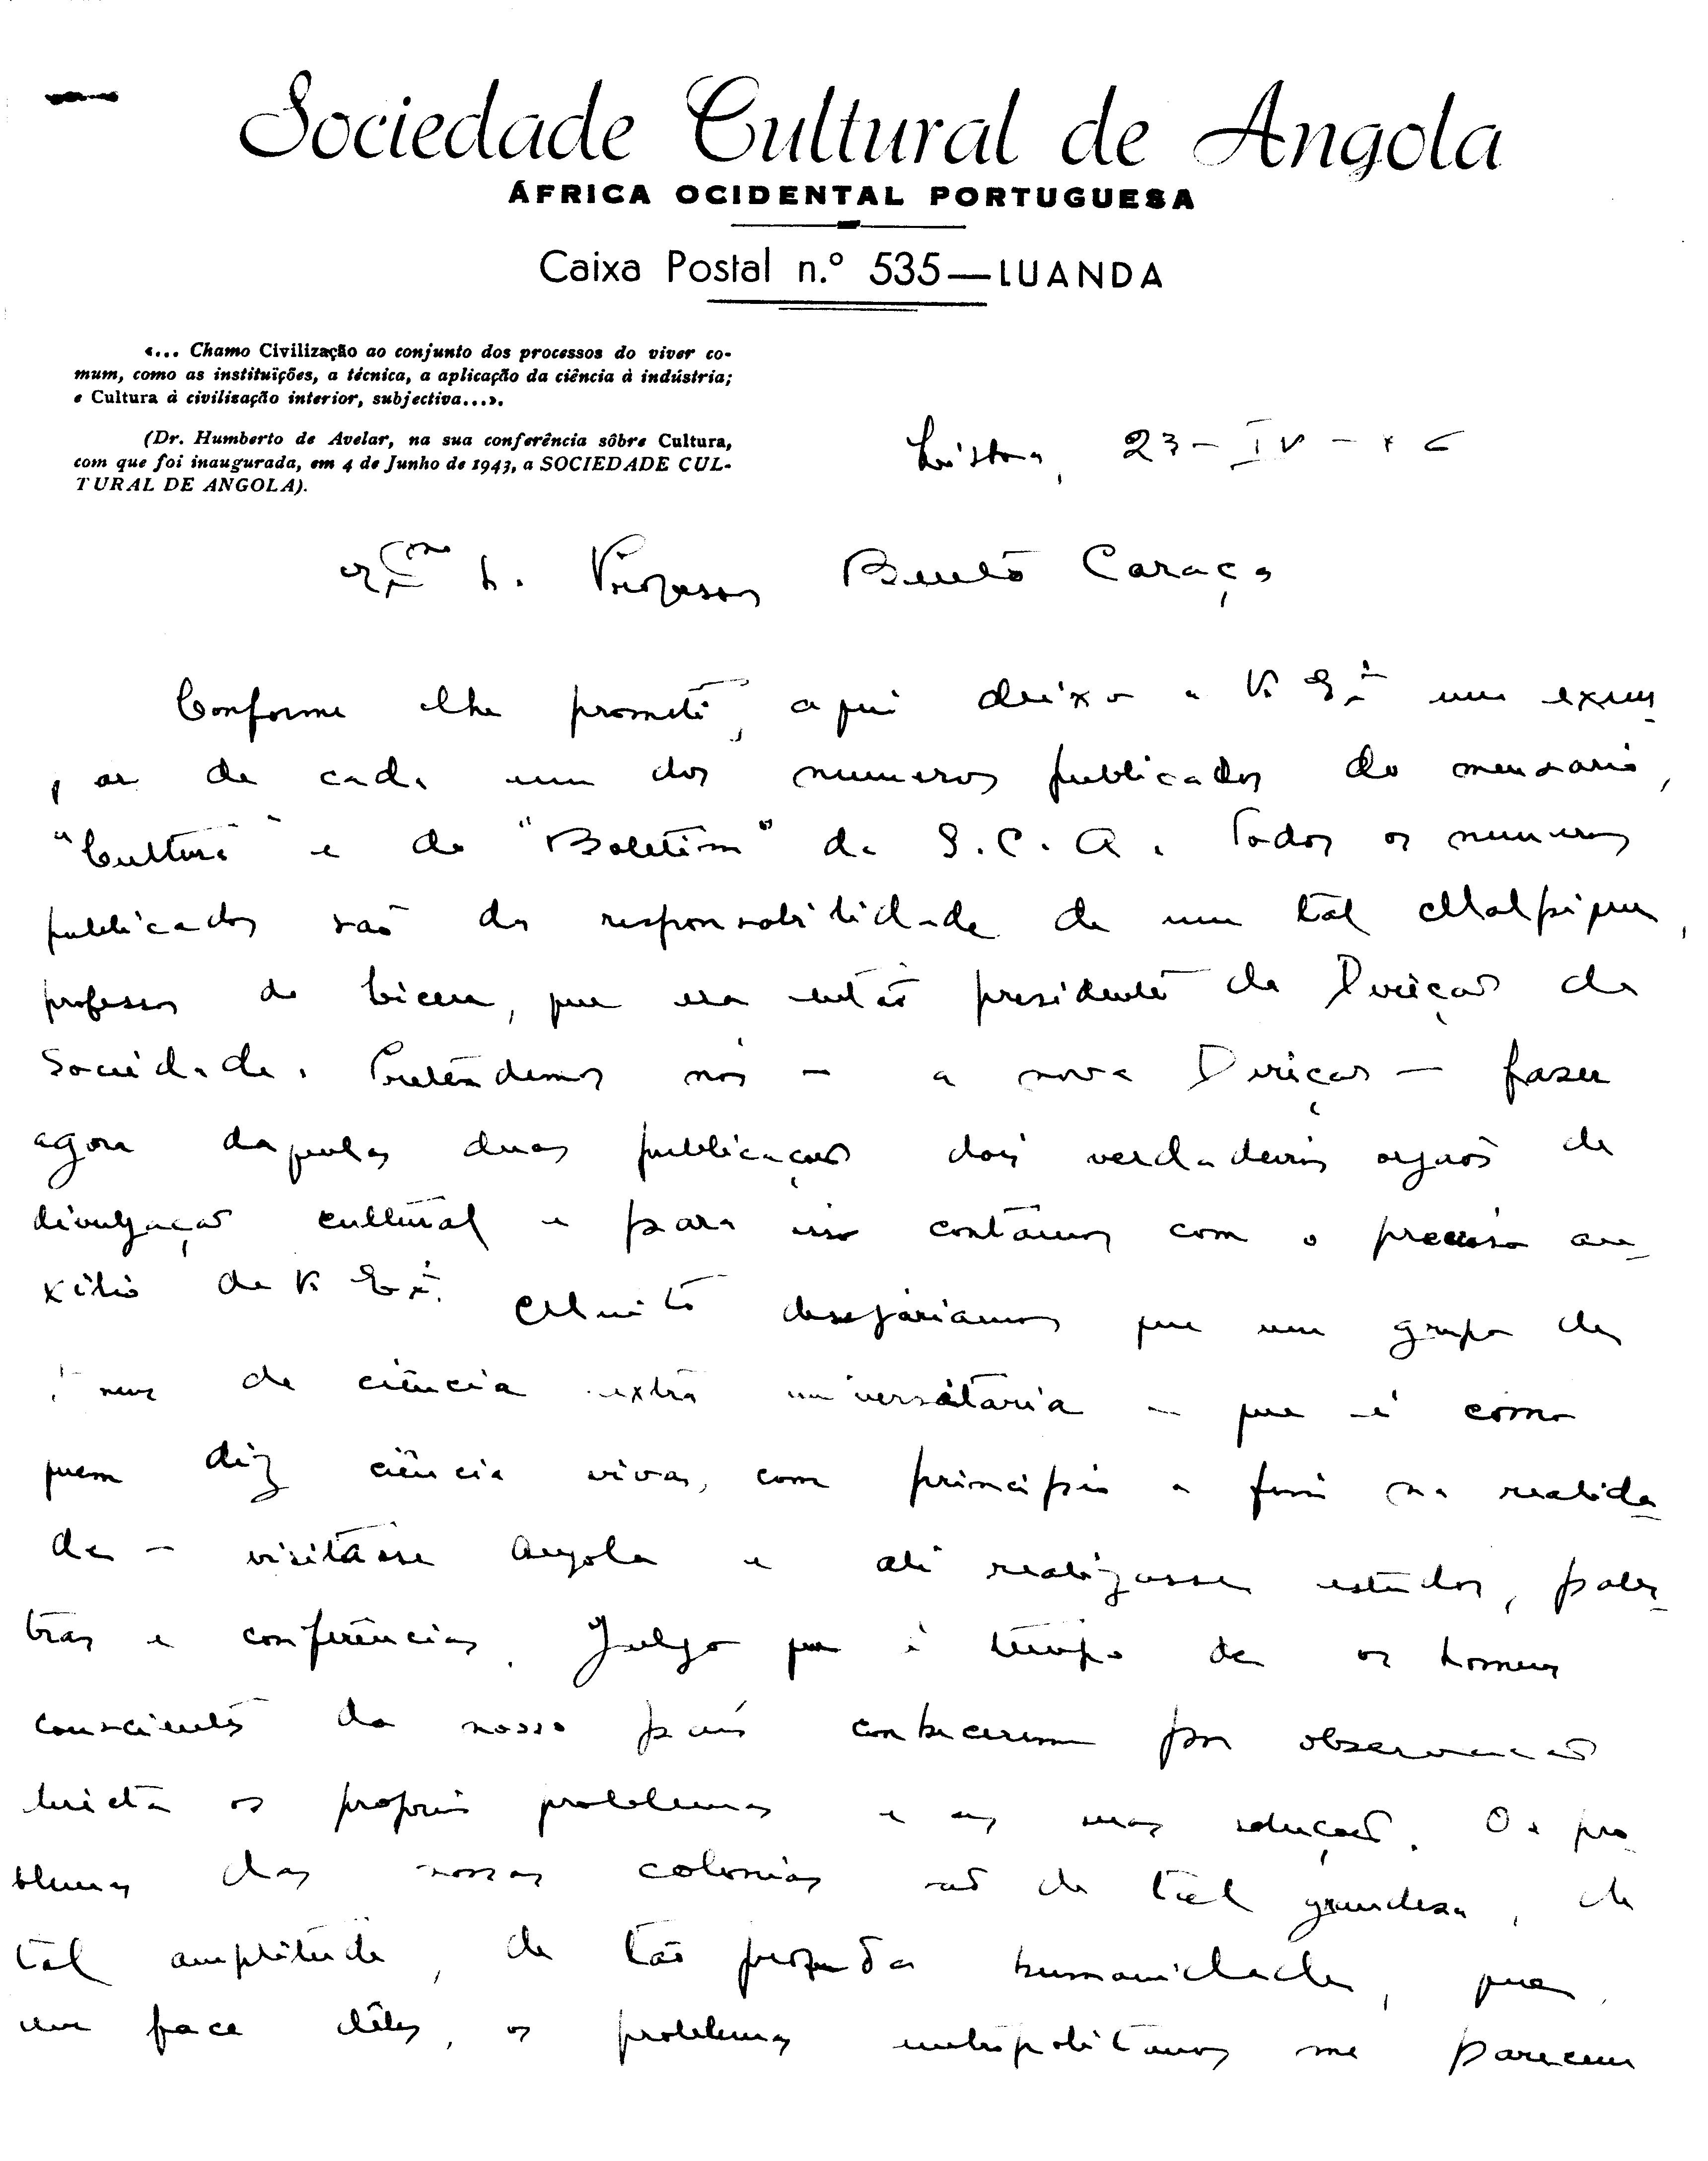 Sociedade Cultural de Angola
ÁFRICA OCIDENTAL PORTUGUESA
Caixa Postal n.º 535 — LUANDA
«... Chamo Civilização ao conjunto dos processos do viver co-
mum, como as instituïções, a técnica, a aplicação da ciência à indústria;
e Cultura à civilisação interior, subjectiva...».
(Dr. Humberto de Avelar, na sua conferência sôbre Cultura,
com que foi inaugurada, em 4 de Junho de 1943, a SOCIEDADE CUL-
TURAL DE ANGOLA).
Lisboa, 23-IV-46
Exmo Sr. Professor Bento Caraça
Conforme lhe prometi, aqui deixo a V. Exª um exem-
lar de cada um dos numeros publicados do mensario,
"Cultura" e do "Boletim" da S. C. A. Todos os numeros
publicados são da responsabilidade de um tal Malpique,
professor do Liceu, que era então presidente da Direcção da
Sociedade. Pretendemos nós - a nova Direcção - fazer
agora daquelas duas publicações dois verdadeiros orgãos de
divulgação cultural e para isso contâmos com o precioso au-
xilio de V. Exª. Muito desejáriamos que um grupo de
de ciência extra universitária - que é como
quem diz ciência viva, com principio e fim na realida-
de - visitasse Angola e ali realizasse estudos, pales-
tras e conferências. Julgo que é tempo de os homens
conscientes do nosso país conhecerem por observação
directa os proprios problemas e as suas soluções. Os pro-
blemas das nossas colonias são de tal grandesa, de
tal amplitude, de tão profunda humanidade, que,
em face dêles, os problemas metropolitanos me parecem